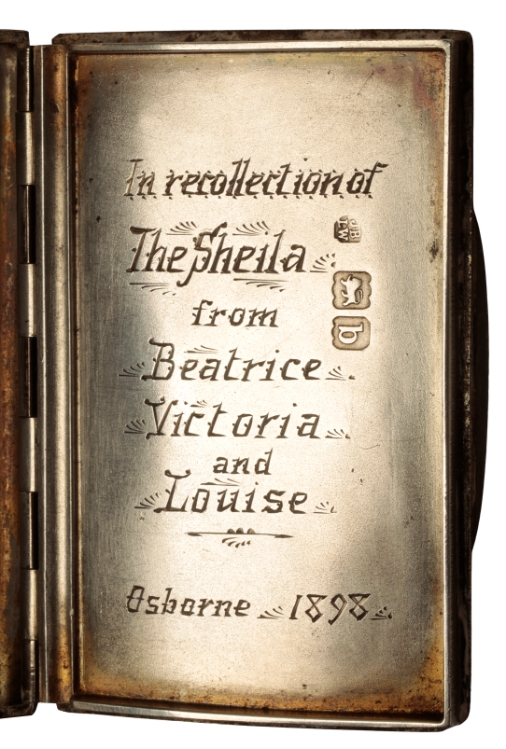 In recollection of
The Sheila
from
Beatrice
Victoria
and
Louise
Osborne 1898
b